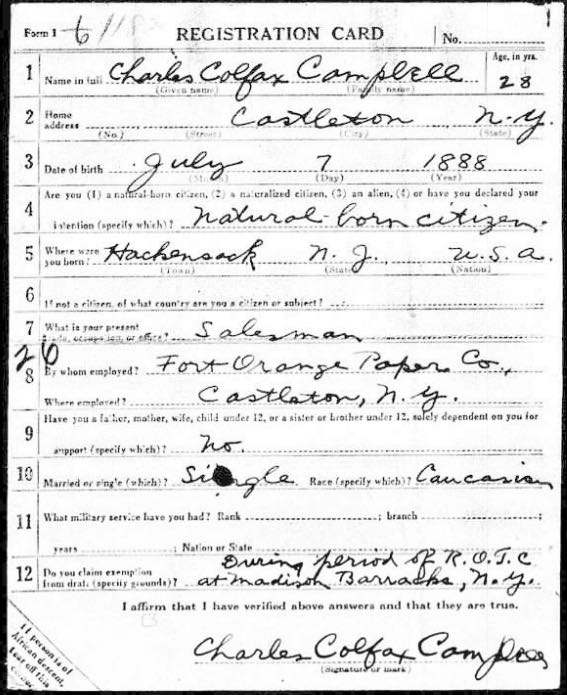 Form 1 REGISTRATION CARD No.
1 Name in full Charles Colfax Campbell Age, in yrs. 28
(Given name) (Family name)
2 Home address Castleton N.Y.
(No.) (Street) (City) (State)
3 Date of birth July 7 1888
(Month) (Day) (Year)
Are you (1) a natural-born citizen, (2) a naturalized citizen, (3) an alien, (4) or have you declared your
4 intention (specify which)? Natural-born citizen.
5 Where were you born? Hackensack N.J. U.S.A.
(Town) (State) (Nation)
6 If not a citizen, of what country are you a citizen or subject?
7 What is your present trade, occupation, or office? Salesman
26
8 By whom employed? Fort Orange Paper Co.,
Where employed? Castleton, N.Y.
Have you a father, mother, wife, child under 12, or a sister or brother under 12, solely dependent on you for
9 support (specify which)? No.
10 Married or single (which)? Single Race (specify which)? Caucasian
11 What military service have you had? Rank ; branch ;
years ; Nation or State
12 Do you claim exemption from draft (specify grounds)? During period of R.O.T.C at Madison Barracks, N.Y.
I affirm that I have verified above answers and that they are true.
Charles Colfax Campbell
(Signature or mark)
If person is of
African descent,
tear off this
corner